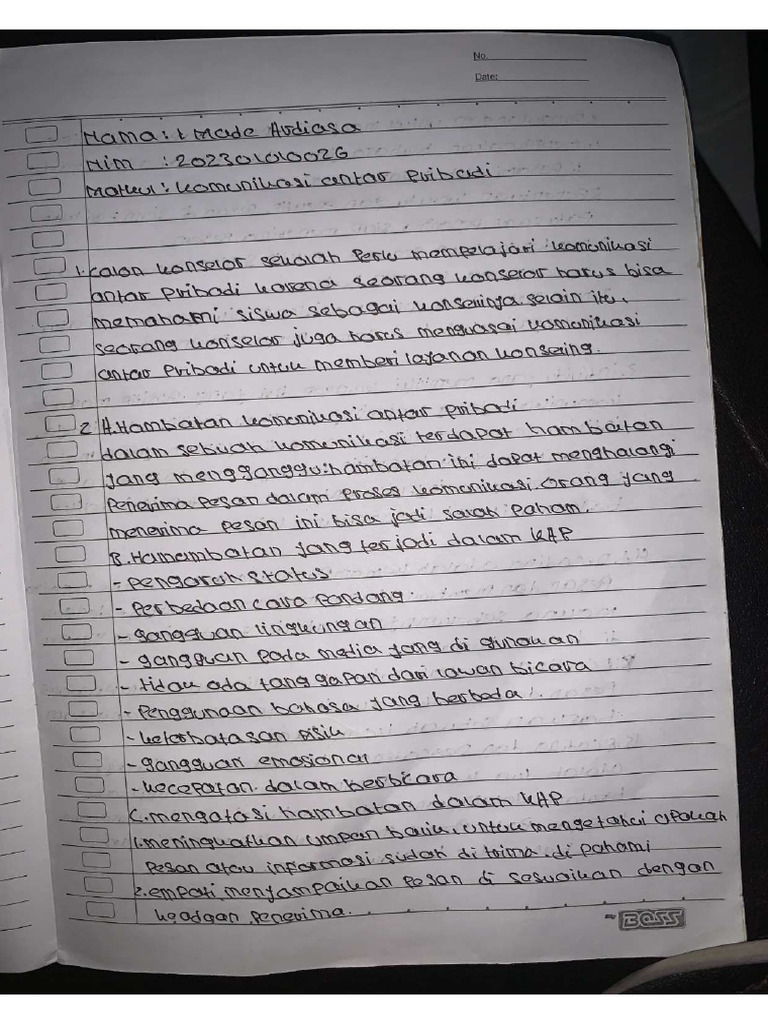 No.
Date:
Nama : I Made Ardiasa
Nim : 202301010026
Matkul : Komunikasi antar Pribadi
1. Calon konselor sekolah Perlu mempelajari komunikasi
antar Pribadi karena seorang konselor harus bisa
memahami siswa sebagai konselinya selain itu,
seorang konselor juga harus menguasai komunikasi
antar Pribadi untuk memberi layanan konseing.
2 A. Hambatan komonikasi antar pribadi
dalam sebuah komunikasi terdapat hambatan
yang mengganggu: hambatan ini dapat menghalangi
Penerima Pesan dalam Proses komonikasi. orang yang
menerima pesan ini bisa jadi salah paham.
B. Hamambatan yang terjadi dalam KAP
- pengaruh status
- perbedaan cara pandang.
- gangguan lingkungan
- gangguan pada media yang di gunakan
- tidak ada tanggapan dari lawan bicara
- Penggunaan bahasa yang berbeda.
- keterbatasan fisik
- gangguan emosional
- kecepatan dalam berbicara
C. mengatasi hambatan dalam KAP
1. meningkatkan umpan balik, untuk mengetahui apakah
pesan atau informasi sudah di trima, di pahami
2. empati, menyampaikan pesan di sesuaikan dengan
keadaan penerima.
BOSS